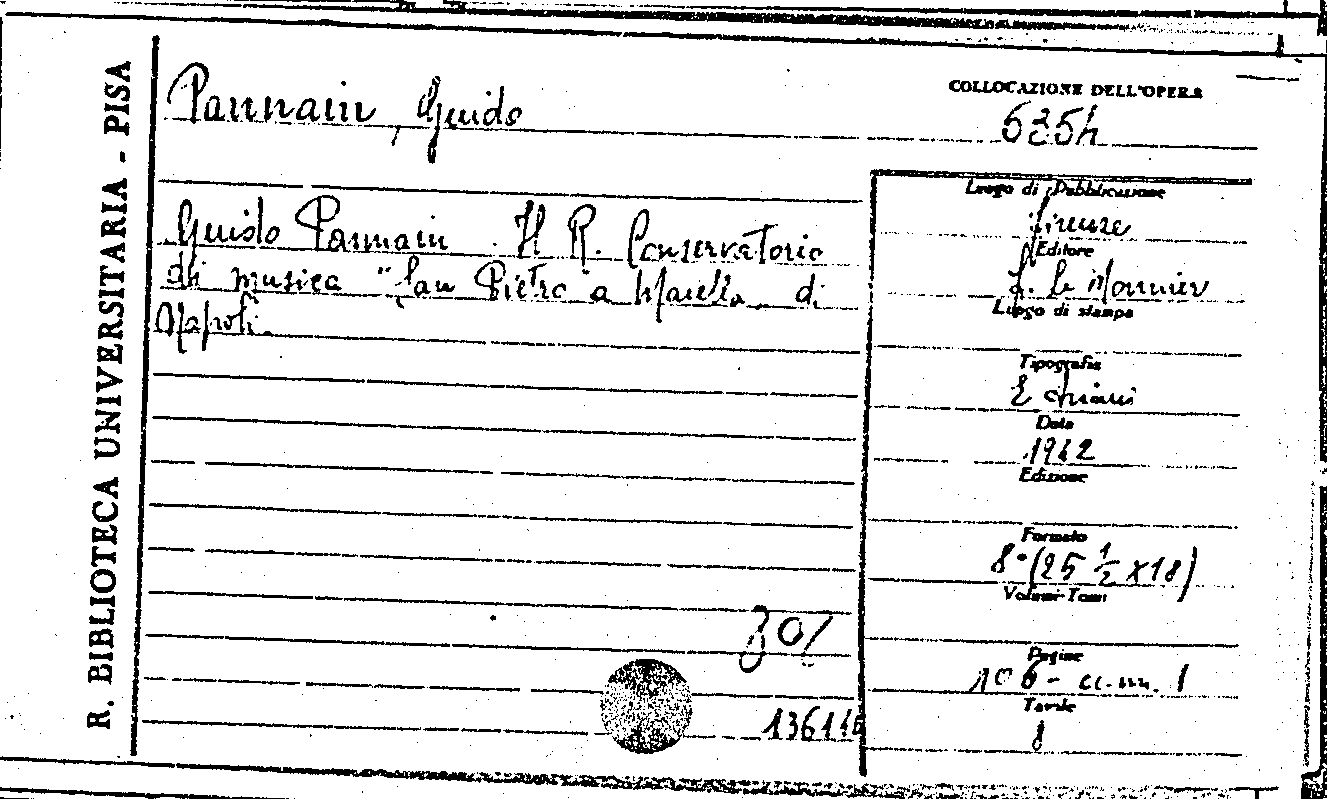 R. BIBLIOTECA UNIVERSITARIA - PISA
Pannain, Guido
COLLOCAZIONE DELL'OPERA
Guido Pannain. Il R. Conservatorio
di musica "San Pietro a Maiella" di
Napoli.
Luogo di Pubblicazione
Firenze
Editore
F. Le Monnier
Luogo di stampa
Tipografia
E. Ariani
Data
1942
Edizione
Formato
8° (25 1/2 x 18)
Volumi-Tomi
Pagine
106 - cc. nn. 1
Tavole
8